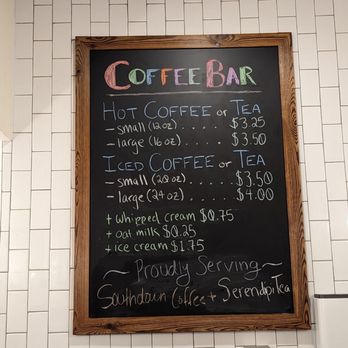 COFFEE BAR
HOT COFFEE or TEA
- small (12 oz) ..... $3.25
- large (16 oz) ..... $3.50
ICED COFFEE or TEA
- small (20 oz) ..... $3.50
- large (24 oz) .... $4.00
+ whipped cream $0.75
+ oat milk $0.25
+ ice cream $1.75
~ Proudly Serving ~
Southdown Coffee + SerendipiTea